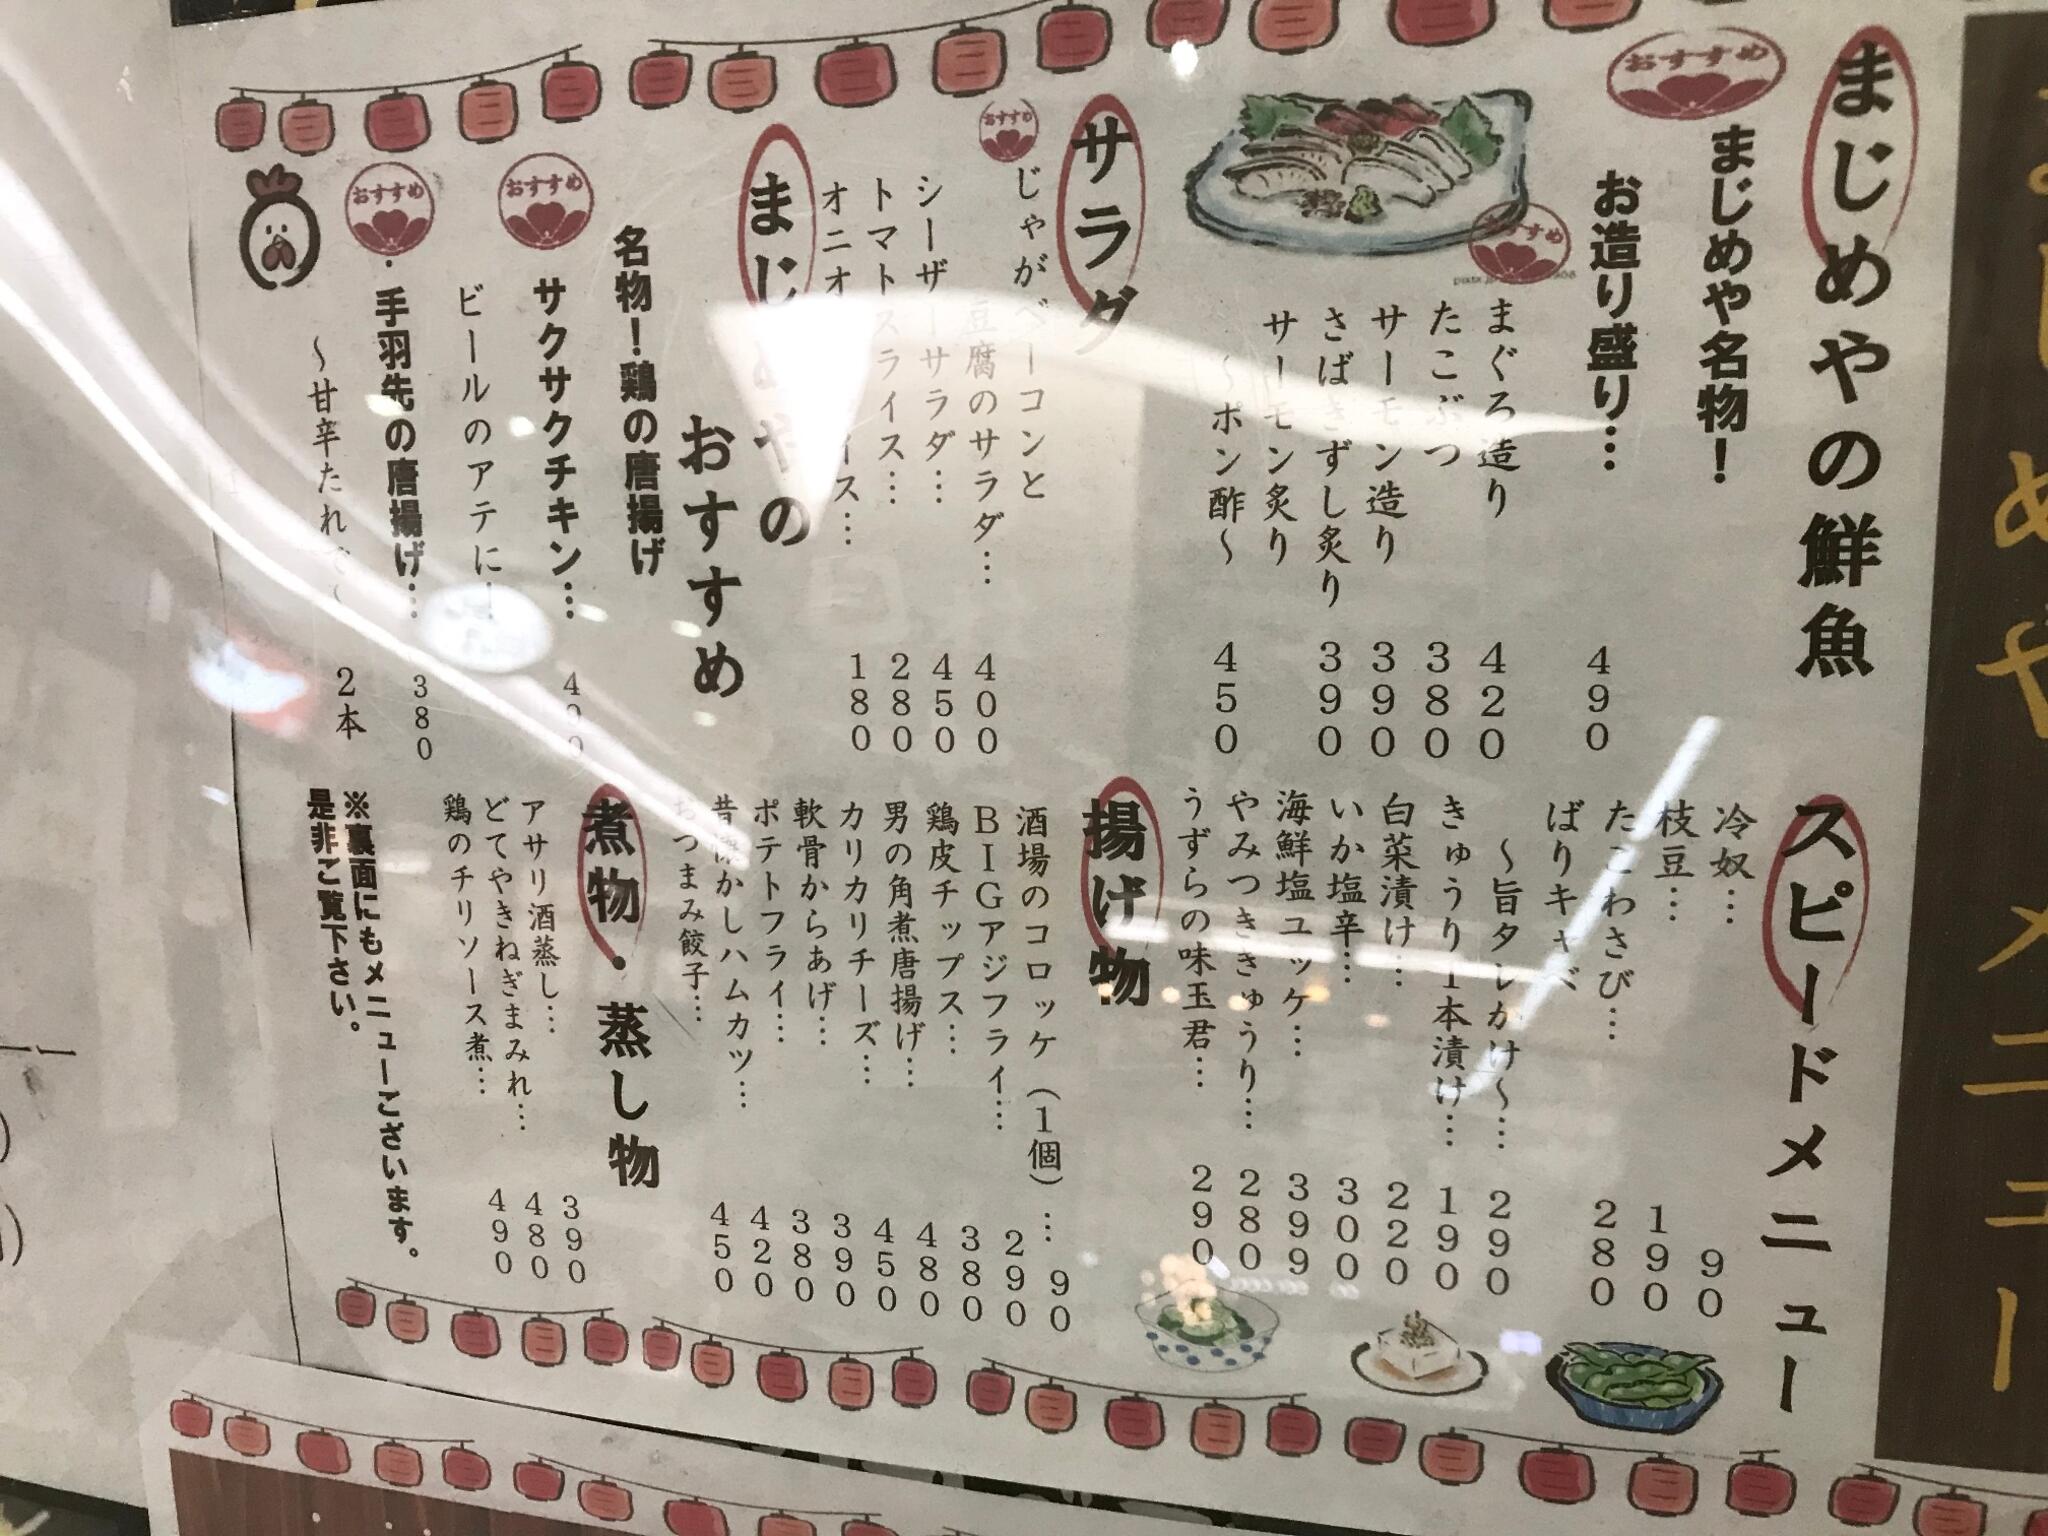 まじめやの鮮魚
おすすめ
まじめや名物！
お造り盛り… 490
おすすめ
まぐろ造り 420
たこぶつ 380
サーモン造り 390
さばきずし炙り 390
サーモン炙り
～ポン酢～ 450
サラダ
おすすめ
じゃがベーコンと
豆腐のサラダ… 400
シーザーサラダ… 450
トマトスライス… 280
オニオ イス… 180
まじめやの
おすすめ
名物！鶏の唐揚げ
おすすめ
サクサクチキン…
ビールのアテに！
おすすめ
・手羽先の唐揚げ… 380
～甘辛たれで～ 2本
スピードメニュー
冷奴… 90
枝豆… 190
たこわさび… 280
ばりキャベ
～旨タレかけ～… 290
きゅうり1本漬け… 190
白菜漬け… 220
いか塩辛… 300
海鮮塩ユッケ… 399
やみつききゅうり… 280
うずらの味玉君… 290
揚げ物
酒場のコロッケ（1個）… 90
BIGアジフライ… 290
鶏皮チップス… 380
男の角煮唐揚げ… 480
カリカリチーズ… 450
軟骨からあげ… 390
ポテトフライ… 380
昔懐かしハムカツ… 420
おつまみ餃子… 450
煮物・蒸し物
アサリ酒蒸し… 390
どてやきねぎまみれ… 480
鶏のチリソース煮… 490
※裏面にもメニューございます。
是非ご覧下さい。
めやメニュー